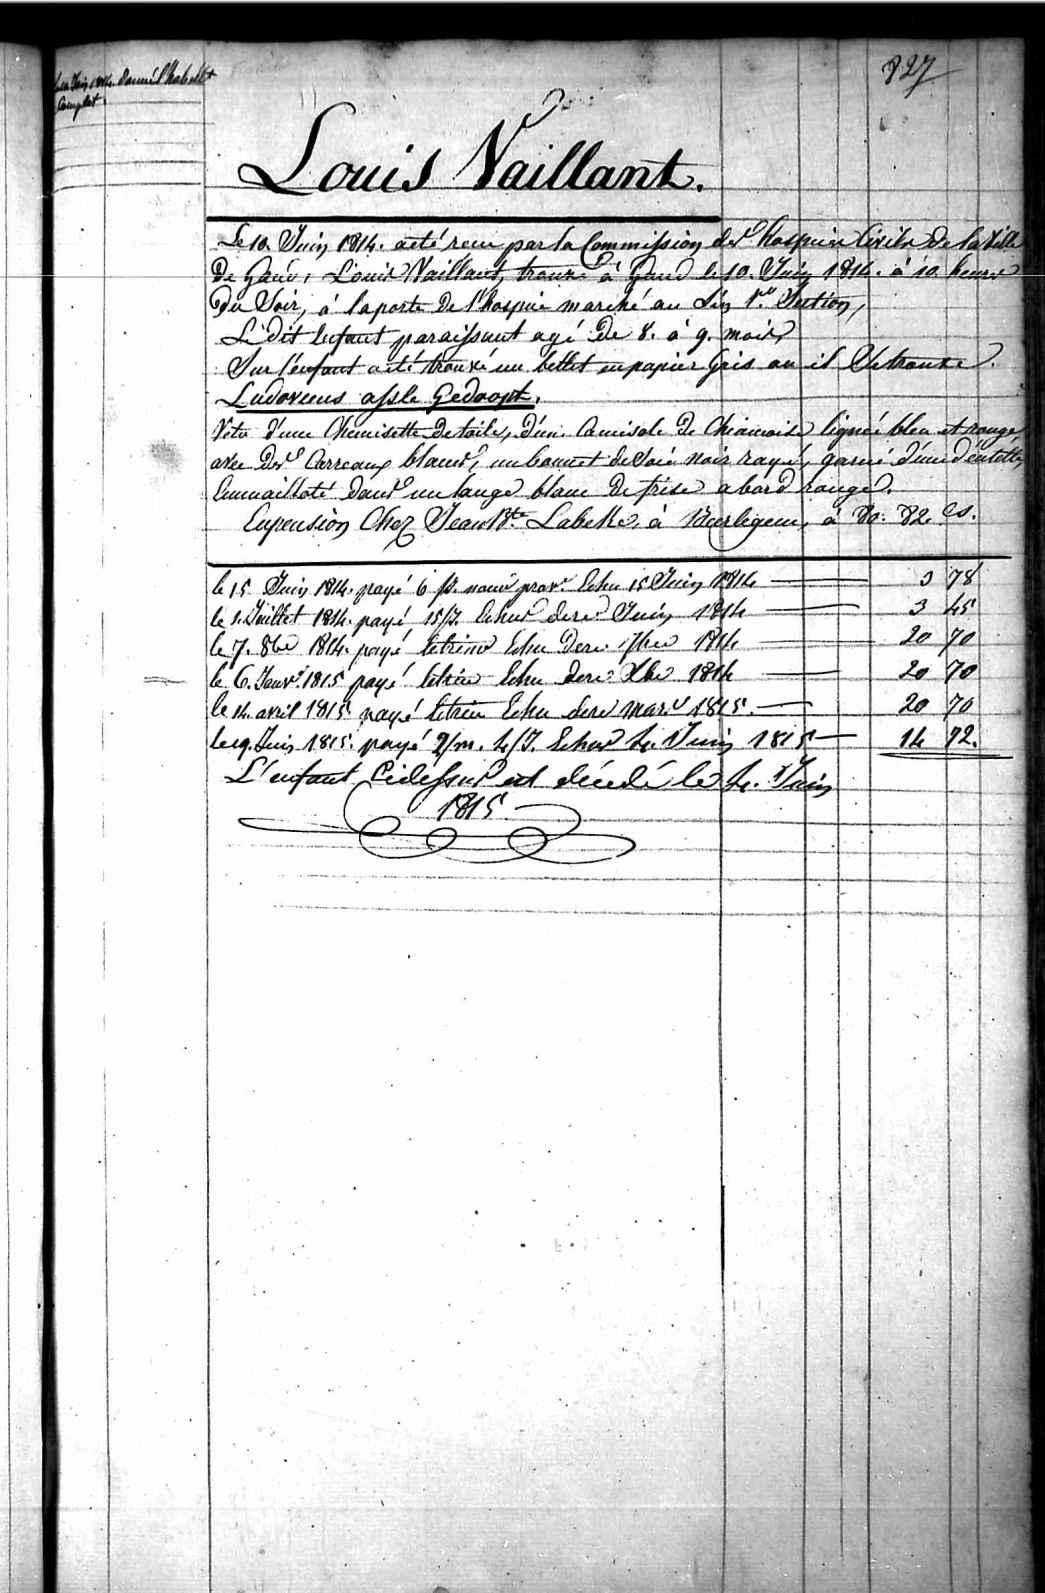 827
donné l'habillt
Complet.
Louis Vaillant.
Le 10. Juin 1814. a été recu par la Commission des hospices Civils de la Ville
de Gand, Louis Vaillant, trouvé à Gand le 10. Juin 1814. à 10. heures
du Soir, à la porte de l'hospice marché au Lin 1.re Section,
Le dit Enfant paraissant agé de 8. à 9. mois,
Sur l'enfant a été trouvé un billet en papier Gris ou il Se trouve.
Ludovicus Gedoopt.
Vetu d'une Chemisette de toile, d'une Camisole de Chiamoise, lignée bleu et rouge,
avec des Carreaux blancs, un bonnet de Soie noir rayé, garni d'une dentelle,
Emmailloté dans un lange blanc de frise a bord rouge.
En pension Chez Jean Bte. Labeke, à à 80: 82. Cs.
le 15 Juin 1814. payé 6 js. nour prov. Echu 15 Juin 1814 3 78
le 1. Juillet 1814. payé 15/J. Echus dere. Juin 1814 3 45
le 7. 8bre 1814. payé le trim Echu dere. 7bre 1814 20 70
le 6. Janvr. 1815 payé le trim Echu dere Xbre 1814 20 70
le 14. avril 1815 payé le trim Echu dere mars 1815. 20 70
le 19. Juin 1815. payé 2/m. 4/J. Echus 4. Juin 1815 14 72.
L'enfant Cidessus est décédé le 4. Juin
1815.